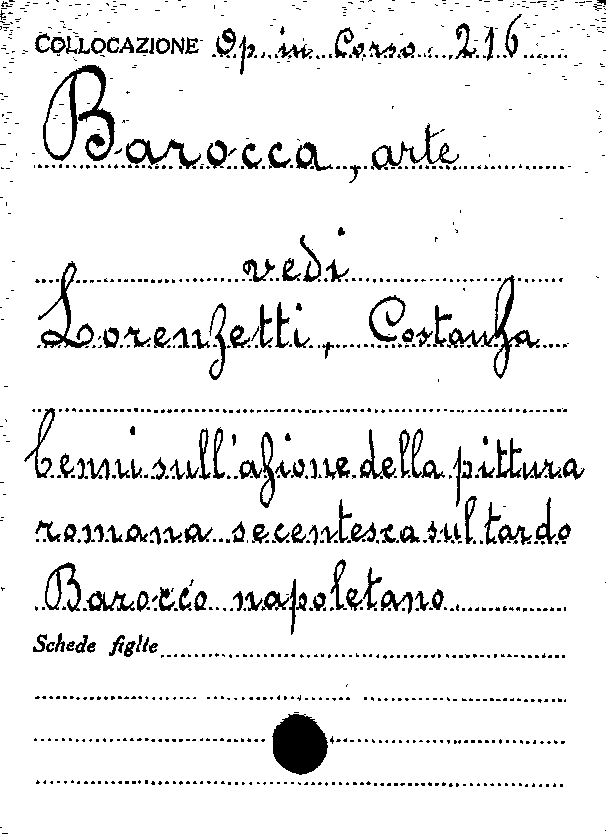 COLLOCAZIONE Op. in Corso. 216
Barocca, arte
vedi
Lorenzetti, Costanza
Cenni sull'azione della pittura
romana secentesca sul tardo
Barocco napoletano
Schede figlie